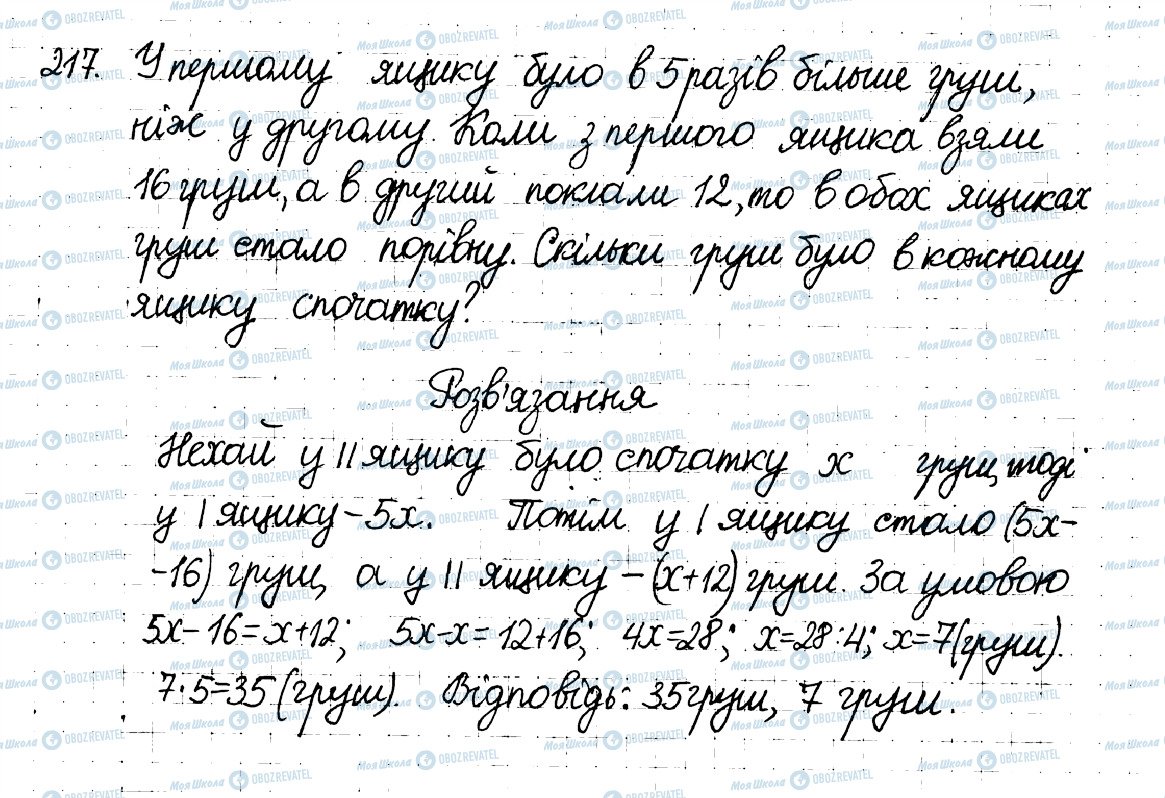 217. У першому ящику було в 5 разів більше груш,
ніж у другому. Коли з першого ящика взяли
16 груш, а в другий поклали 12, то в обох ящиках
груш стало порівну. Скільки груш було в кожному
ящику спочатку?
Розв'язання
Нехай у II ящику було спочатку x груш, тоді
у I ящику - 5x. Потім у I ящику стало (5x-
-16) груш, а у II ящику - (x+12) груш. За умовою
5x-16=x+12; 5x-x=12+16; 4x=28; x=28:4; x=7(груш).
7·5=35(груш). Відповідь: 35 груш, 7 груш.